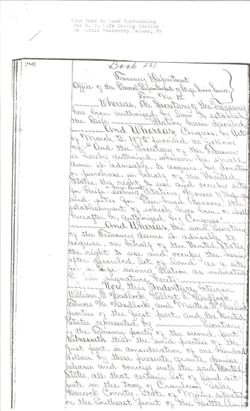 Road Deed to Land Surrounding
the U. S. Life Saving Station
on Little Cranberry Island, ME
Book 233
Treasury Department,
Office of the General Superintendent of Life Saving Service
Form No. 12
Whereas, the Secretary of the Treasury
has been authorized by law to establish
the Life Saving Station herein described
And Whereas, Congress, by Act
of March 3, 1875 provided as follows
"And the Secretary of the Treasury
is hereby authorized, whenever he shall
deem it advisable, to acquire, by donation
or purchase, in behalf of the United
States, the right to use and occupy sites
for Life Saving
and sites for
establishment of which has been or shall
hereafter be authorized by Congress"
And Whereas the said Secretary
of the Treasury deems it advisable to
acquire, on behalf of the United States
the right to use and occupy the herein-
after described lot of land as a site
for a Life Saving Station as indicated
by his signature hereto
Now, this Indenture between
William E. Hadlock, Gilbert E. Hadlock,
Hadlock and
parties of the first part, and the United
States represented by Secretary
of the Treasury party of the second part
Witnesseth that the said parties of the
first part, in consideration of one hundred
dollars by these presents, grants, demises
release and conveys unto the said United
States all that certain lot of land situ-
ate in the town of Cranberry Isles
Hancock County, State of Maine situated
on the Southeast point of the Little